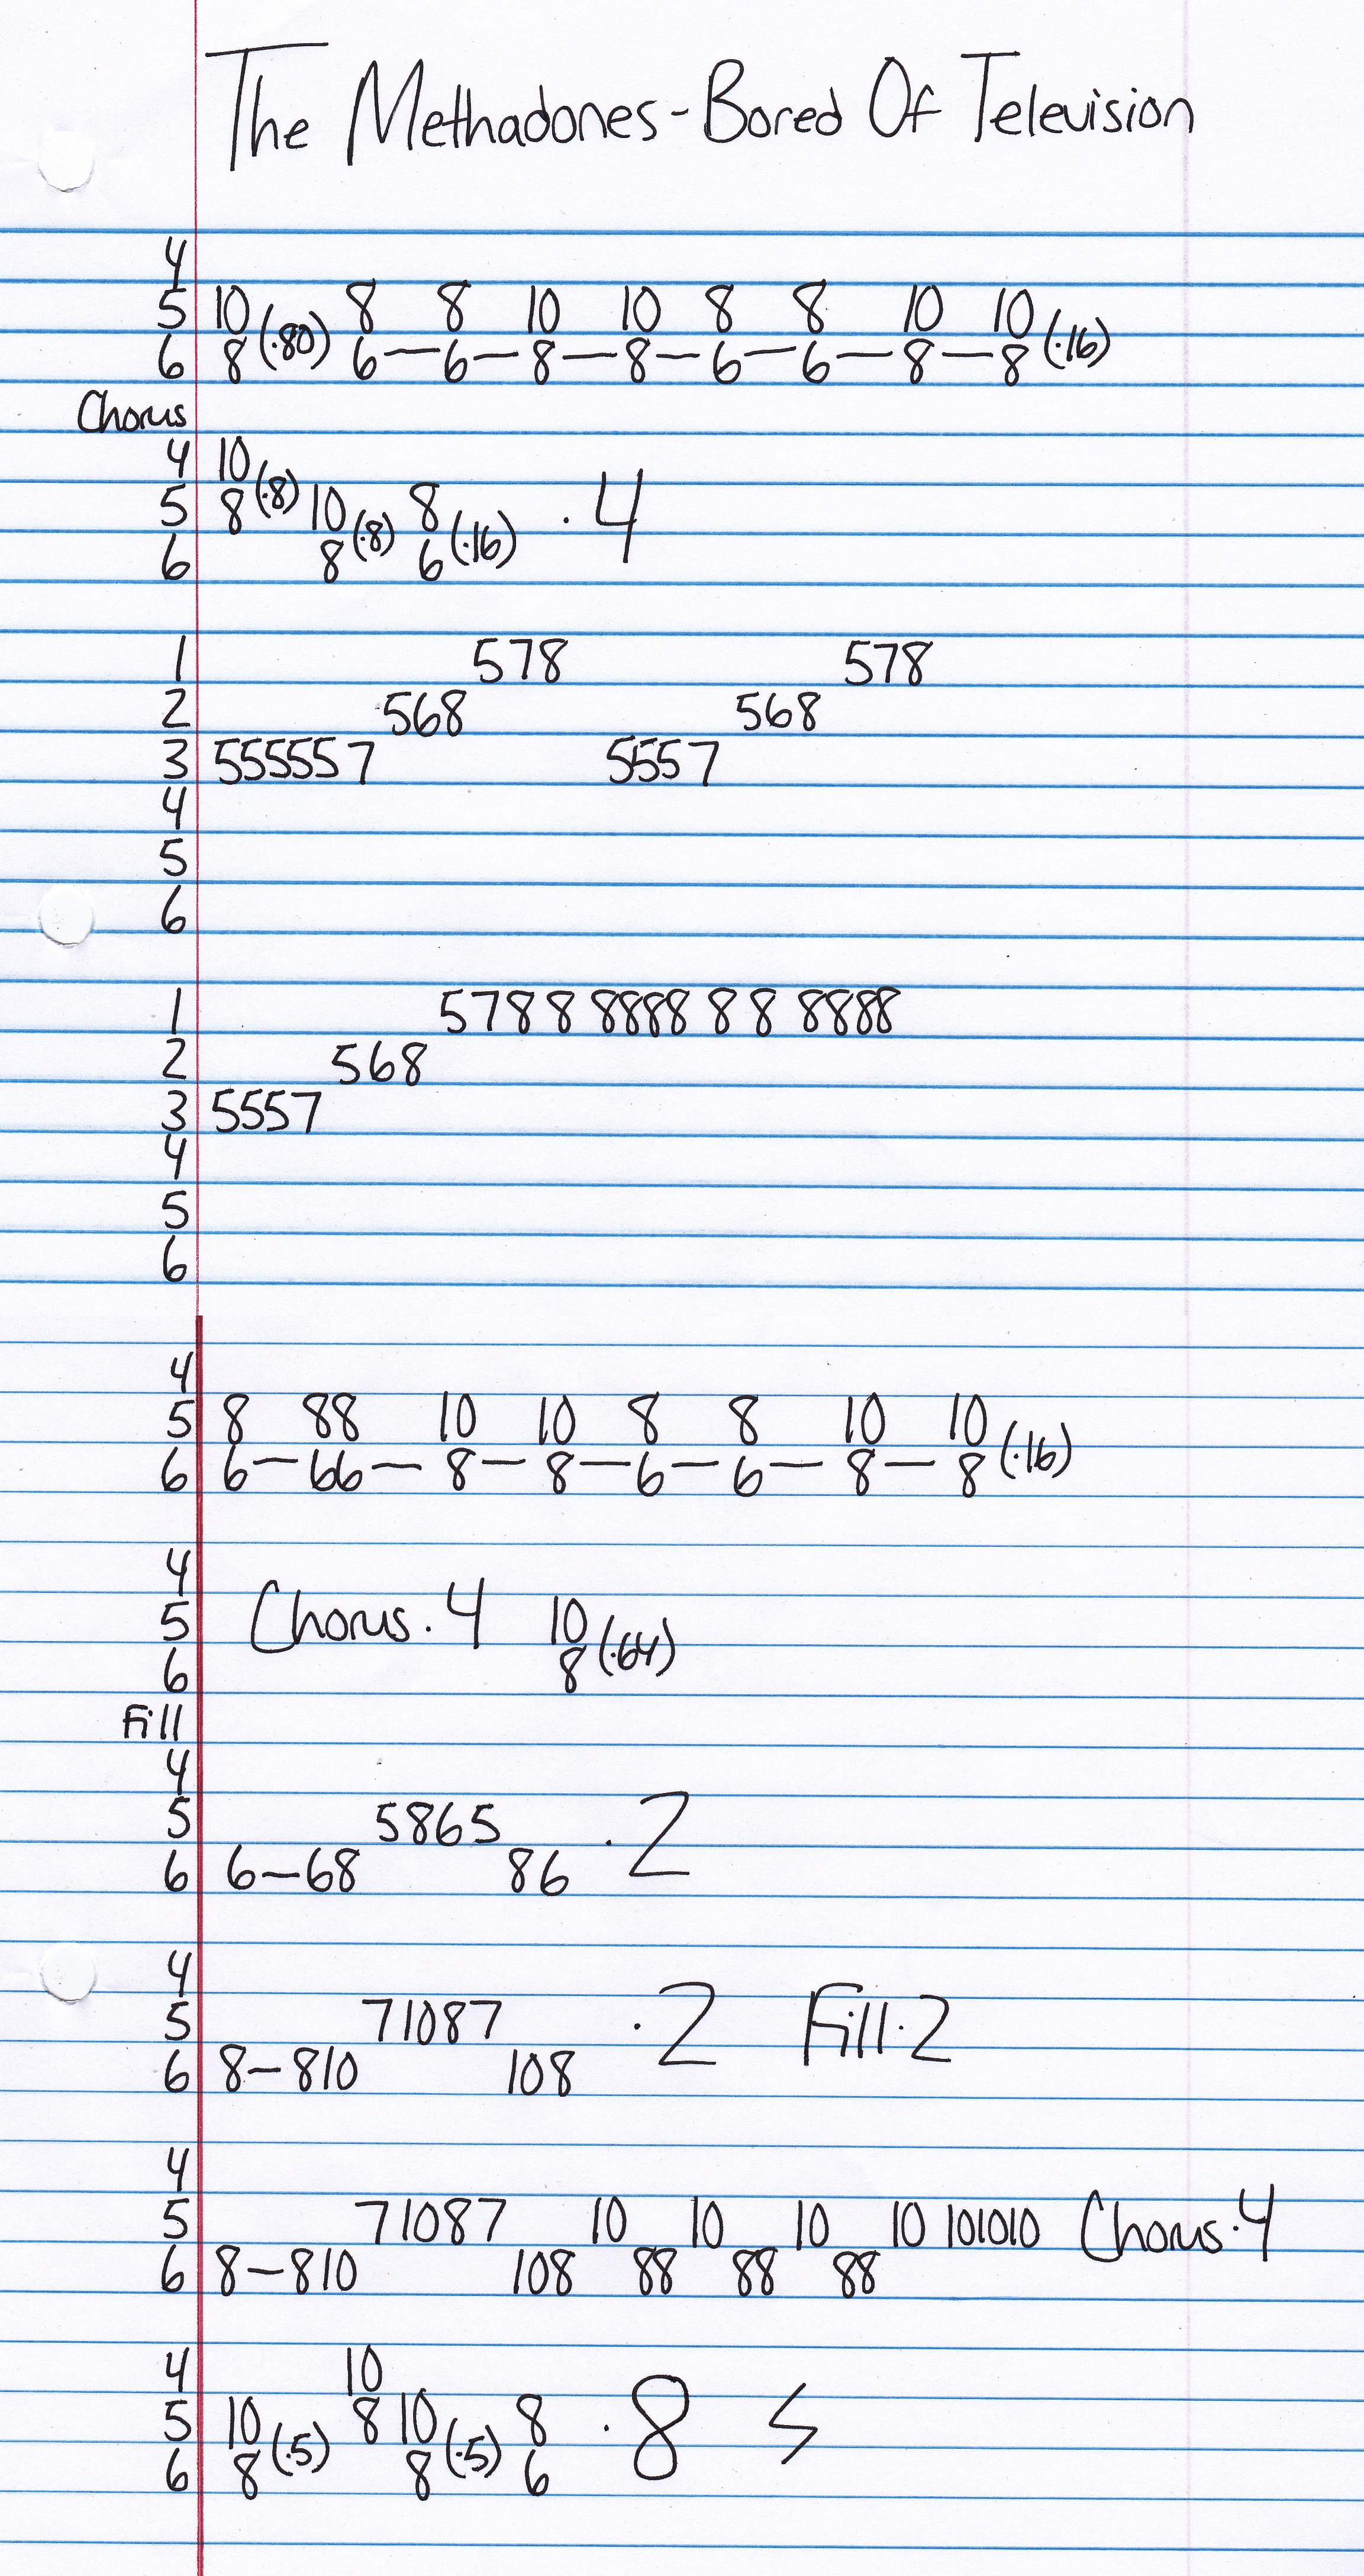 The Methadones - Bored Of Television
4
5 10 8 8 10 10 8 8 10 10
6 8 (·80) 6—6—8—8—6—6—8—8 (·16)
Chorus
4 10
5 8 (·8) 10 8 · 4
6 8 (·8) 6 (·16)
1 578 578
2 568 568
3 555557 5557
4
5
6
1 5788 8888 8 8 8888
2 568
3 5557
4
5
6
4
5 8 88 10 10 8 8 10 10
6 6—66—8—8—6—6—8—8 (·16)
4
5 Chorus · 4 10
6 8 (·64)
Fill
4
5 5865 · 2
6 6—68 86
4
5 71087 · 2 Fill · 2
6 8—810 108
4
5 71087 10 10 10 10 101010 Chorus · 4
6 8—810 108 88 88 88
4 10
5 10 8 10 8 · 8
6 8 (·5) 8 (·5) 6